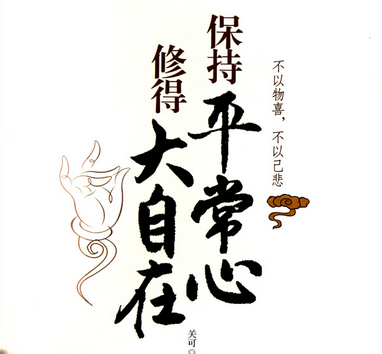 不以物喜，不以己悲
保持平常心
修得大自在
关可◎